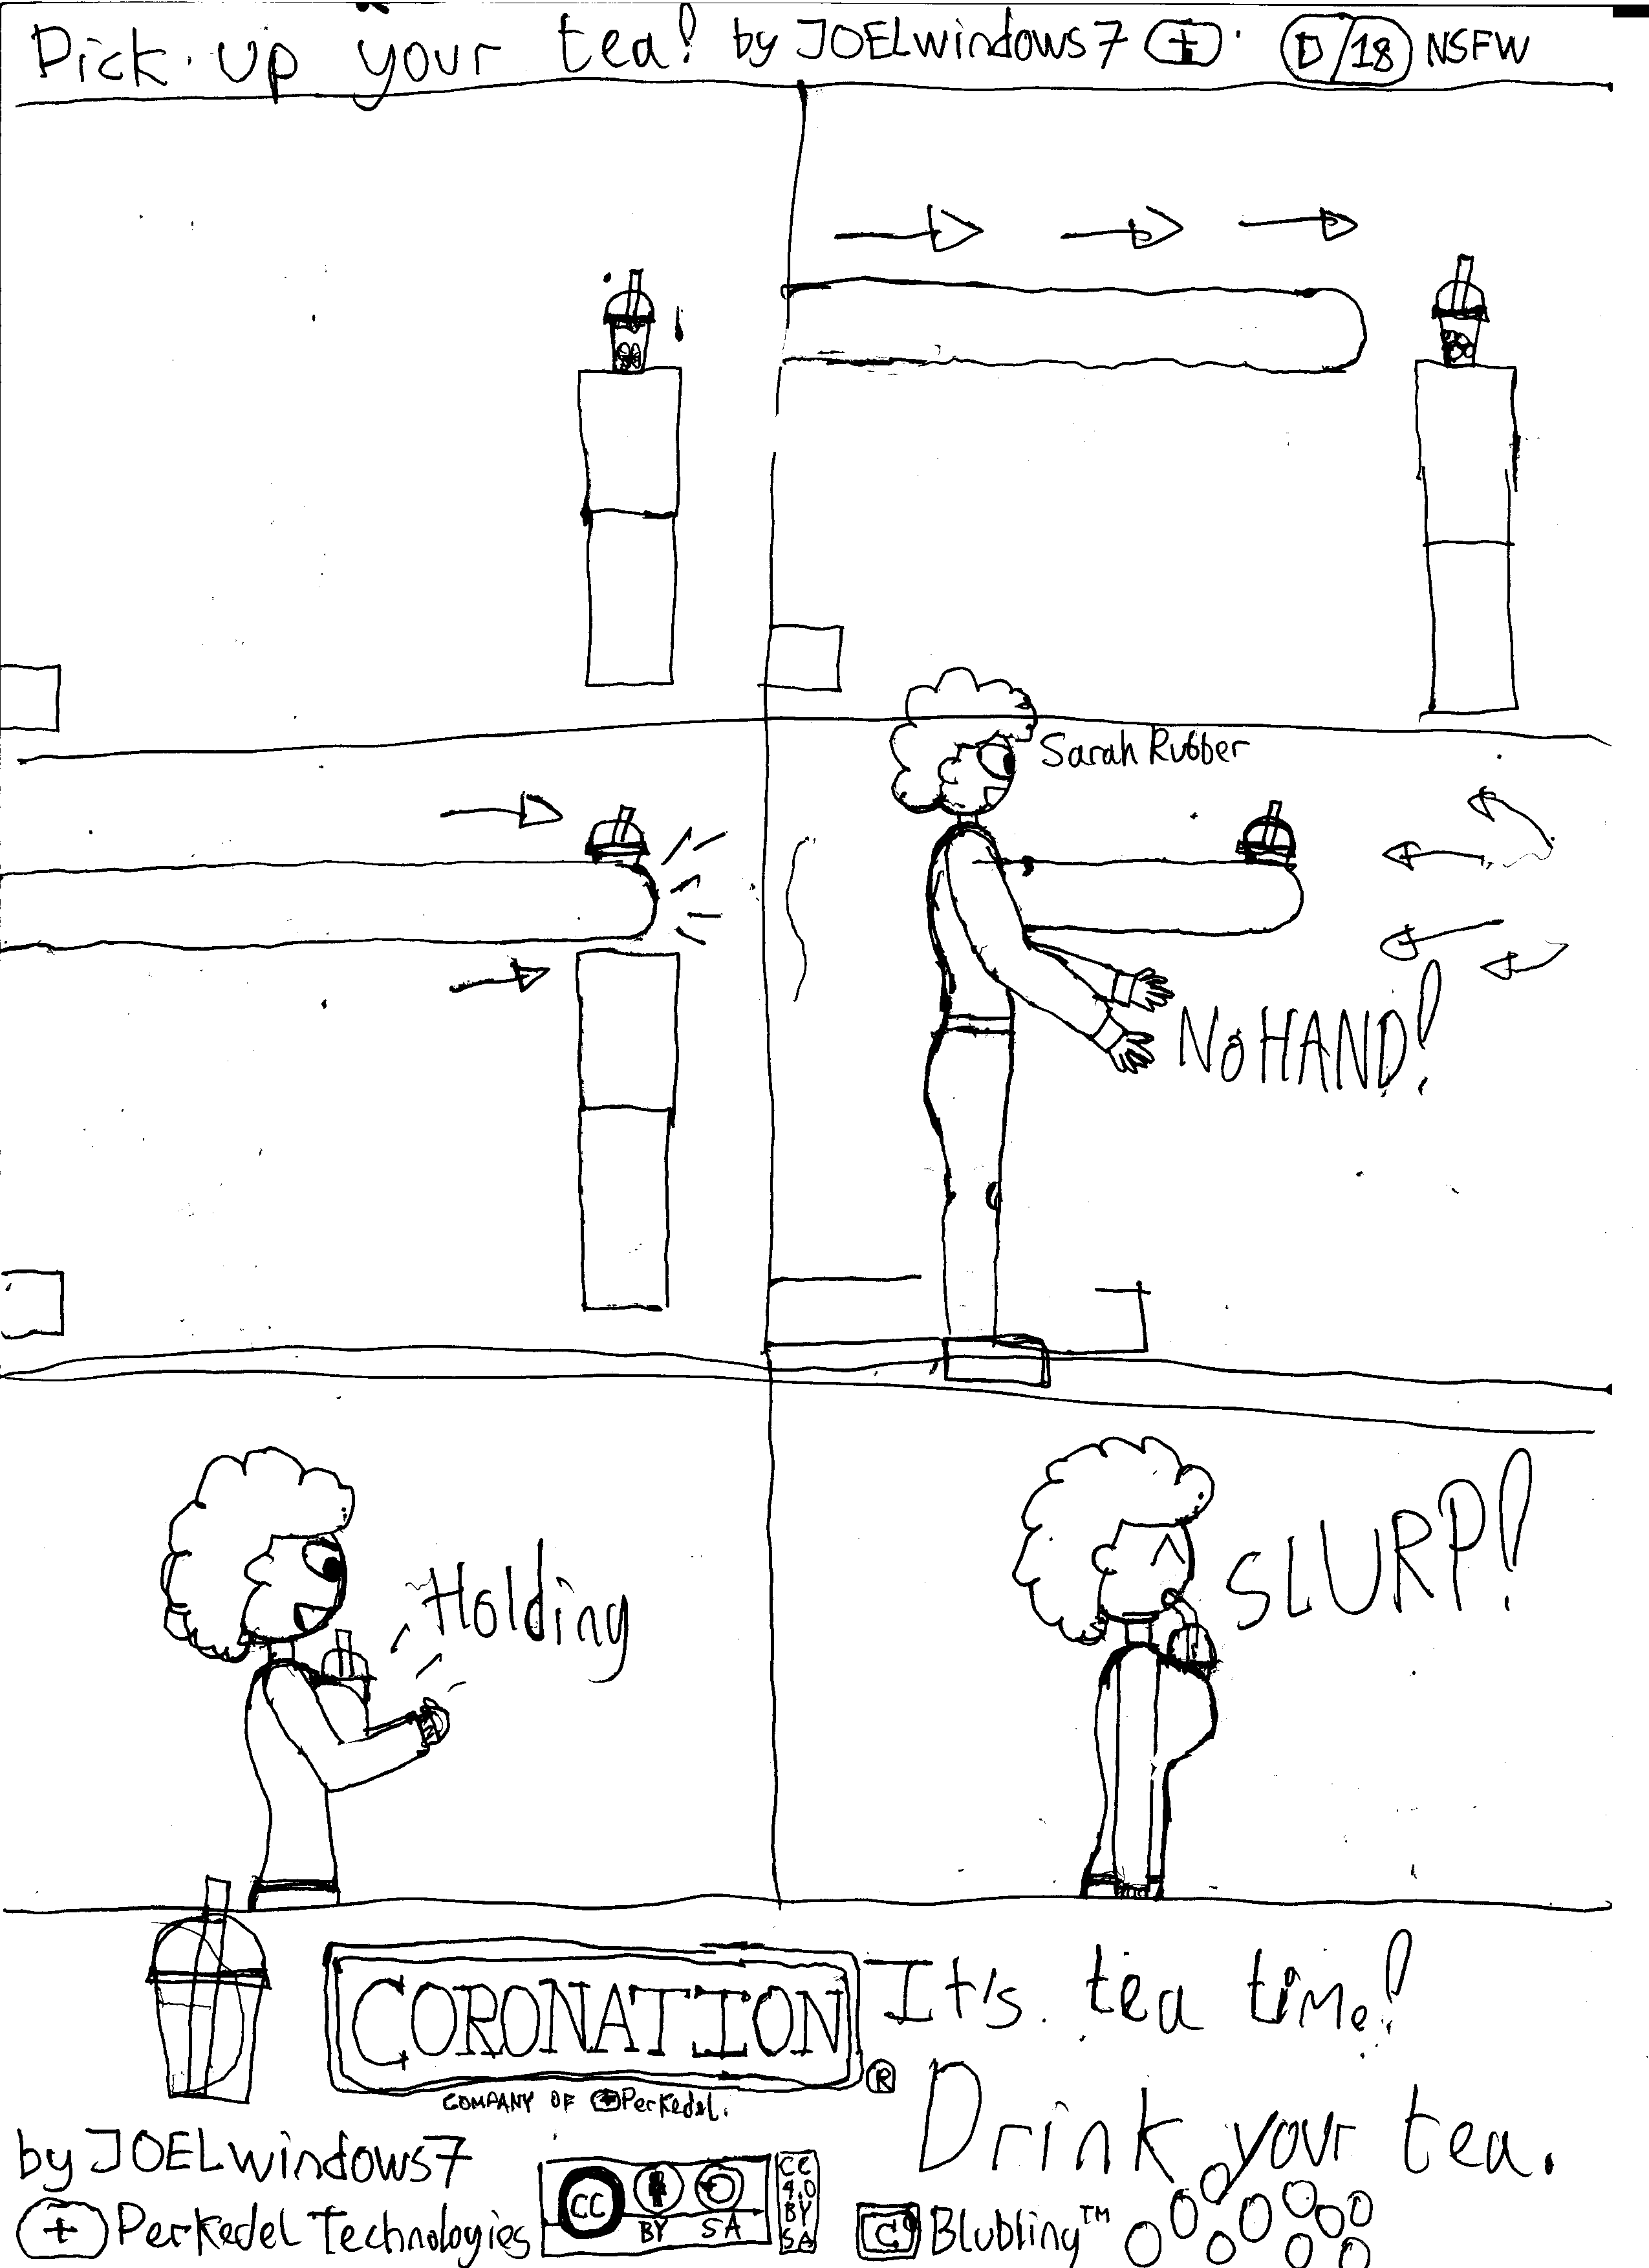 Pick up your tea! by JOELwindows7 + D/18 NSFW
Sarah Rubber
No HAND!
Holding
SLURP!
CORONATION ®
COMPANY OF + Perkedel.
It's tea time!
Drink your tea.
by JOELwindows7
+ Perkedel Technologies
CC BY SA
CC 4.0 BY SA
C Blubling™